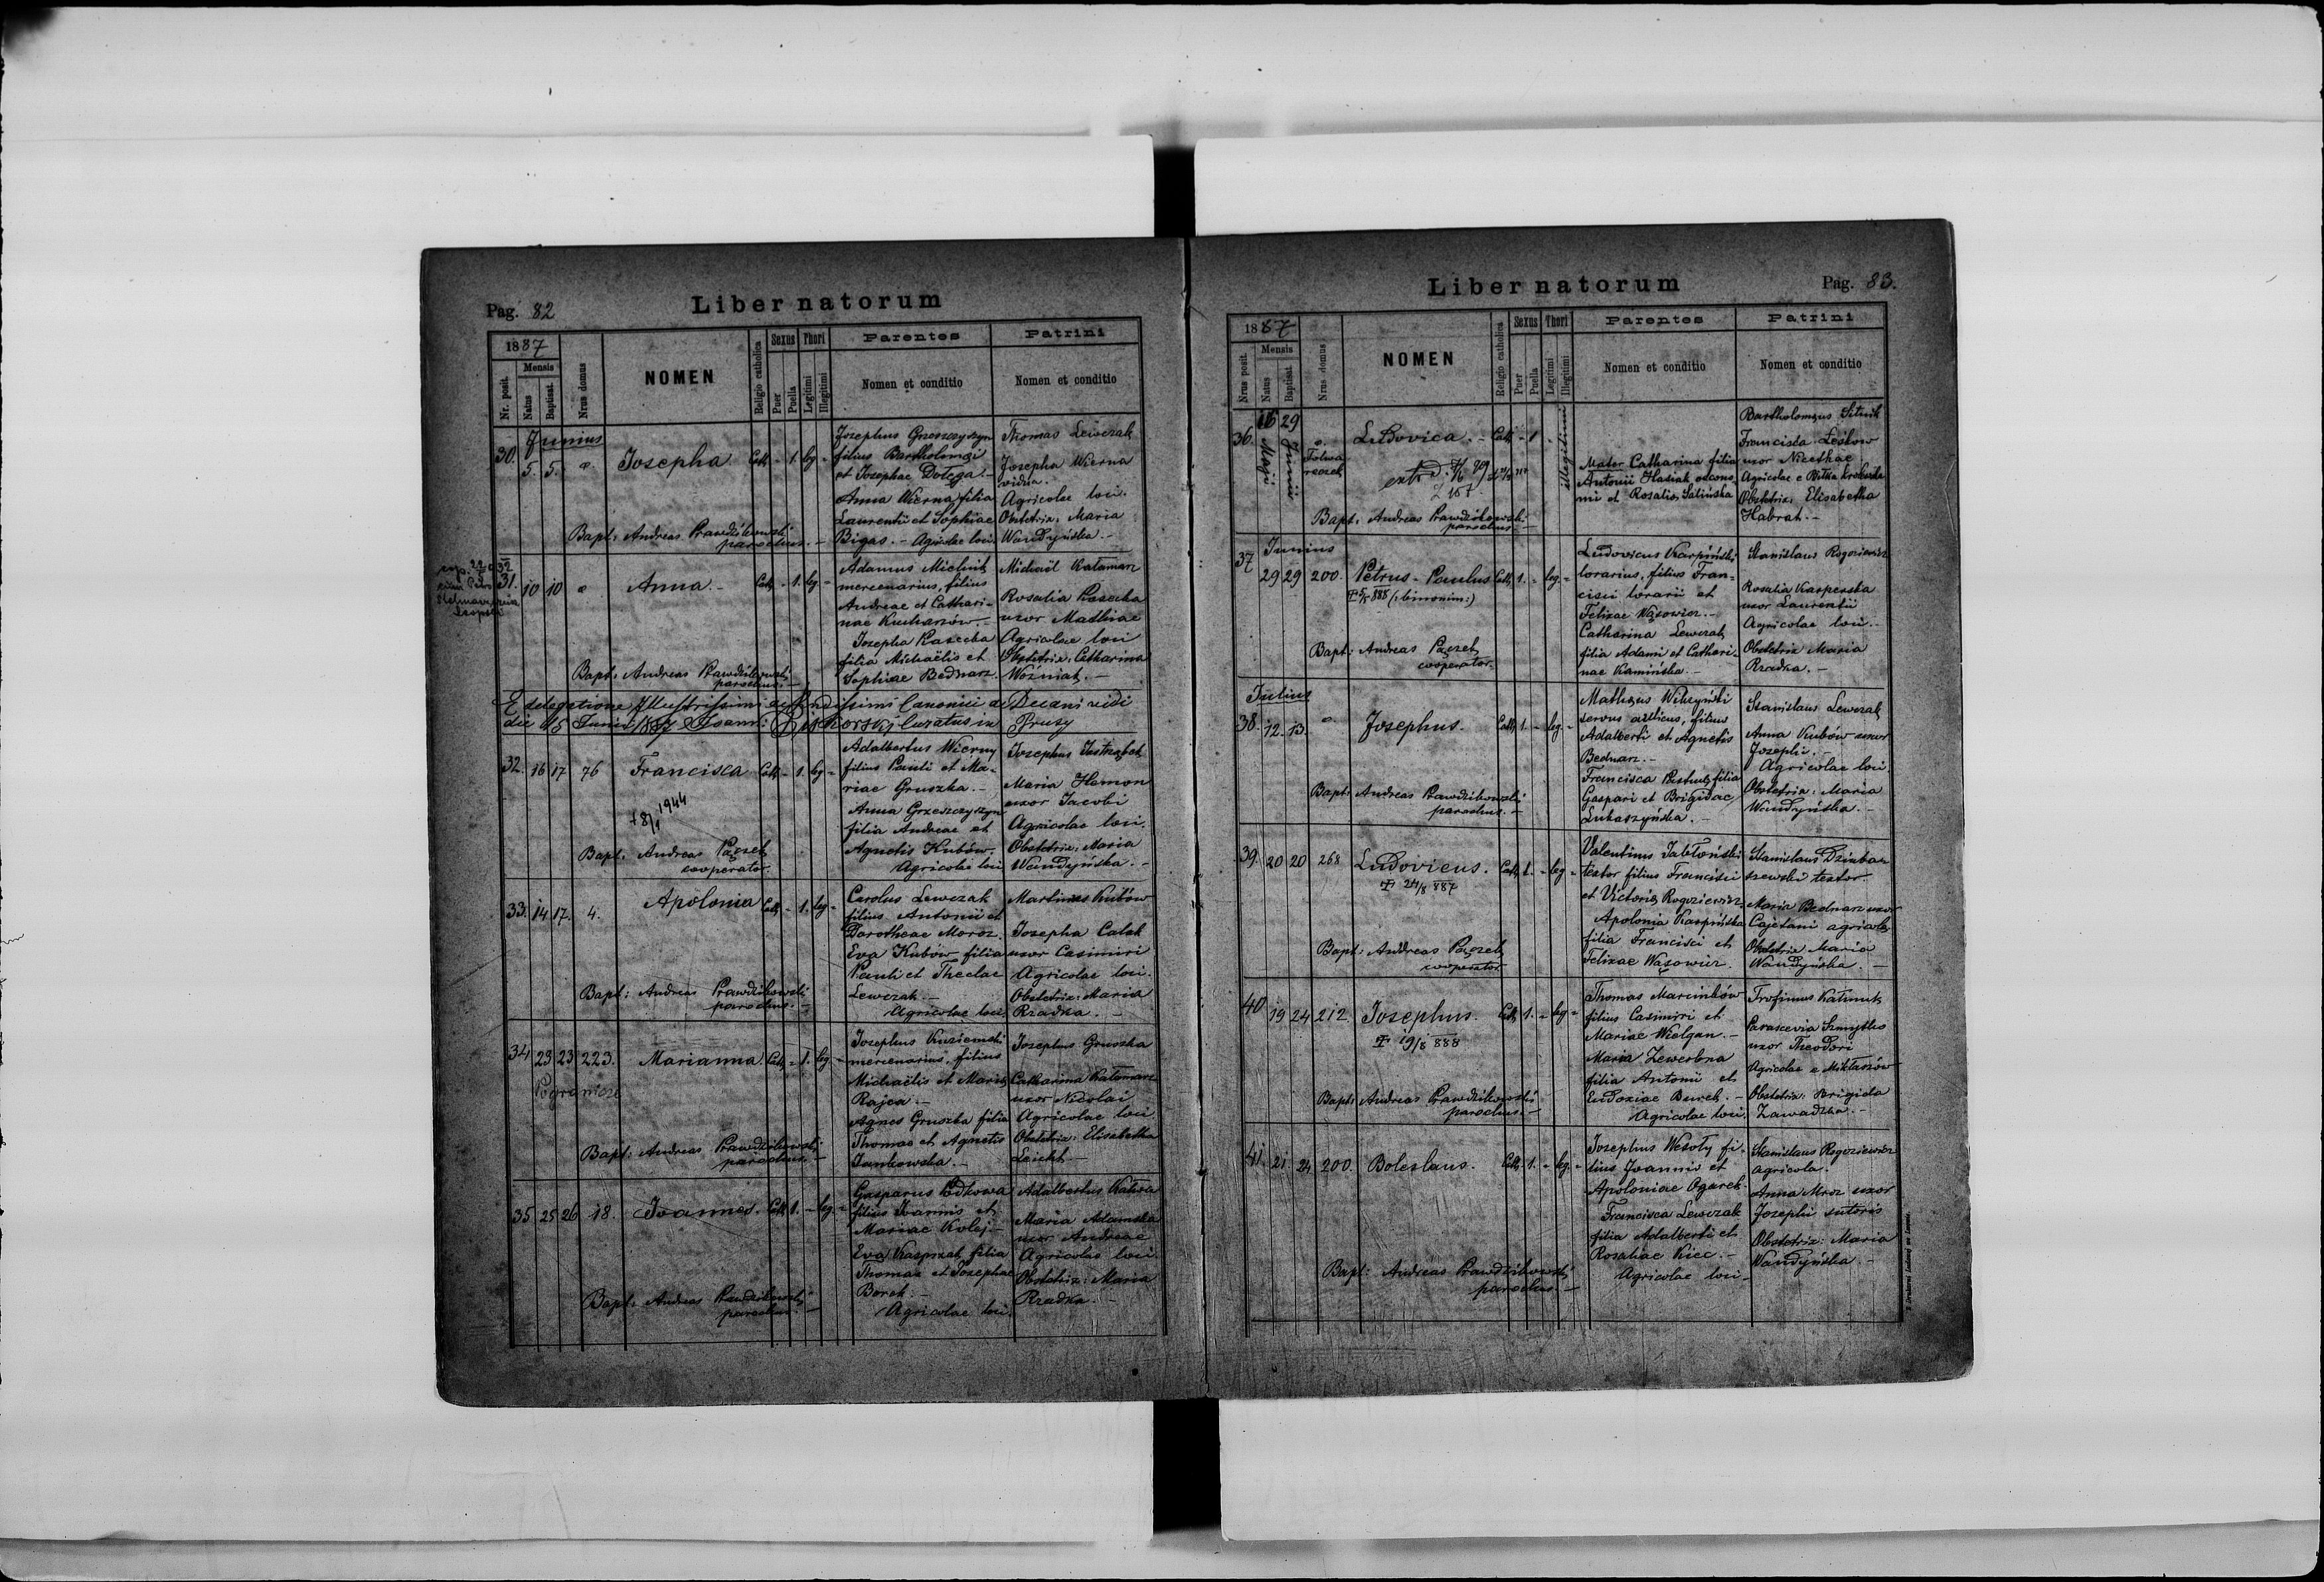 Pag. 82
Liber natorum
1887
Nr. posit.
Mensis
Natus
Baptisat.
Nrus domus
NOMEN
Religio catholica
Sexus
Puer
Puella
Thori
Legitimi
Illegitimi
Parentes
Nomen et conditio
Patrini
Nomen et conditio
Junius
30. 5. 5. Josepha Cath - 1. leg -
Josephus Grzeszczyszyn
filius Bartholomæi
et Josephae Dołęga -
Anna Wierna filia
Laurentii et Sophiae
Bigas. - Agricolae loci
Thomas Lewczak
Josepha Wierna
vidua.
Agricolae loci.
Obstetrix: Maria
Wandyńska. -
Bapt: Andreas Prawdzikowski
parochus. -
31. 10 10 Anna. - Cath - 1. leg -
Adamus Mielnik
mercenarius, filius
Andreae et Cathari-
nae Kucharzów. -
Josepha Kasecka
filia Michaëlis et
Sophiae Bednarz.
Michaël Katamarz
Rosalia Kasecka
uxor Mathiae
Agricolae loci
Obstetrix: Catharina
Woźniak. -
Bapt: Andreas Prawdzikowski
parochus. -
E delegatione Illustrissimi ac Rndissimi Canonici ac Decani vidi
die 15 Junii 1887 Joann: curatus in Prusy
32. 16 17 76 Francisca Cath - 1. leg -
+ 8/1 1944
Adalbertus Wierny
filius Pauli et Ma-
riae Gruszka. -
Anna Grzeszczyszyn
filia Andreae et
Agnetis Kubów.
Agricolae loci
Josephus Jastrząbek
Maria Hamon
uxor Jacobi
Agricolae loci.
Obstetrix: Maria
Wandyńska. -
Bapt: Andreas Pączek
cooperator.
33. 14 17. 4. Apolonia Cath - 1. leg -
Carolus Lewczak
filius Antonii et
Dorotheae Moroz.
Eva Kubów filia
Pauli et Theclae
Lewczak. -
Agricolae loci
Martinus Kubów
Josepha Całak
uxor Casimiri
Agricolae loci.
Obstetrix: Maria
Rzadka. -
Bapt: Andreas Prawdzikowski
parochus. -
34 23 23 223. Marianna Cath - 1. leg -
Pogranicze
Josephus Kuziemski
mercenarius, filius
Michaëlis et Mariæ
Rajca. -
Agnes Gruszka filia
Thomae et Agnetis
Jankowska. -
Josephus Gruszka
Catharina Katamarz
uxor Nicolai
Agricolae loci
Obstetrix: Elisabetha
Leicht -
Bapt: Andreas Prawdzikowski
parochus. -
35 25 26 18. Joannes. Cath 1. - leg. -
Gasparus Żółkowa
filius Joannis et
Mariae Kolej -
Eva Kasprzak filia
Thomae et Josephae
Borek. -
Agricolae loci.
Adalbertus
Maria Adamska
uxor Andreae
Agricolae loci
Obstetrix: Maria
Rzadka. -
Bapt: Andreas Prawdzikowski
parochus. -
Liber natorum
Pag. 83.
1887
Nrus posit.
Mensis
Natus
Baptisat.
Nrus domus
NOMEN
Religio catholica
Sexus
Puer
Puella
Thori
Legitimi
Illegitimi
Parentes
Nomen et conditio
Patrini
Nomen et conditio
36. 16 Maji 29 Junii Folwareczek Ludovica. - Cath - 1 - illegitimi
Mater Catharina filia
Antonii Hasiak œcono
mi et Rosaliæ Salińska
Bartholomæus Sitnik
Francisca Leskow
uxor Nicethae
Agricolae e Biłka królewska
Obstetrix: Elisabetha
Habrat. -
Bapt: Andreas Prawdzikowski
parochus. -
Junius
37 29 29 200. Petrus - Paulus Cath 1. - leg. -
888 (: binomin:)
Ludovicus Karpiński
lorarius, filius Fran-
cisci lorarii et
Felixae Wąsowicz. -
Catharina Lewczak
filia Adami et Cathari-
nae Kamińska. -
Stanislaus Rogoziewicz
Rosalia Kasperska
uxor Laurentii
Agricolae loci. -
Obstetrix Maria
Rzadka. -
Bapt: Andreas Pączek
cooperator
Julius
38. 12. 13. Josephus. Cath 1. - leg -
Mathæus Wilczyński
servus aulicus, filius
Adalberti et Agnetis
Bednarz. -
Francisca filia
Gaspari et Brigidae
Łukaszyńska. -
Stanislaus Lewczak
Anna Kubów uxor
Josephi. -
Agricolae loci
Obstetrix: Maria
Wandyńska. -
Bapt: Andreas Prawdzikowski
parochus. -
39. 20 20 268 Ludovicus. Cath 1. - leg -
+ 24/8 887
Valentinus Jabłoński
textor filius Francisci
et Victoriæ Rogoziewicz
Apolonia Karpińska
filia Francisci et
Felixae Wąsowicz.
Stanislaus Dziuba
szewski textor
Maria Bednarz uxor
Cajetani agricolæ
Obstetrix Maria
Wandyńska. -
Bapt: Andreas Pączek
cooperator
40 19 24 212. Josephus. Cath 1. - leg -
+ 19/8 888
Thomas Marcinków
filius Casimiri et
Mariae Wielgan. -
Maria Zewerbna
filia Antonii et
Eudoxiae Burek. -
Agricolae loci.
Trofimus Kałuniuk
Parascevia Szmyhlo
uxor Theodori
Agricolae e Mikłaszów
Obstetrix: Brigida
Zawadzka. -
Bapt: Andreas Prawdzikowski
parochus. -
41. 21. 24 200. Boleslaus. Cath 1. - leg. -
Josephus Wesoły fi-
lius Joannis et
Apoloniae Ogarek
Francisca Lewczak
filia Adalberti et
Rosaliae Kiec. -
Agricolae loci -
Stanislaus Rogoziewicz
agricola.
Anna Mroz uxor
Josephi sutoris
Obstetrix: Maria
Wandyńska -
Bapt: Andreas Prawdzikowski
parochus. -